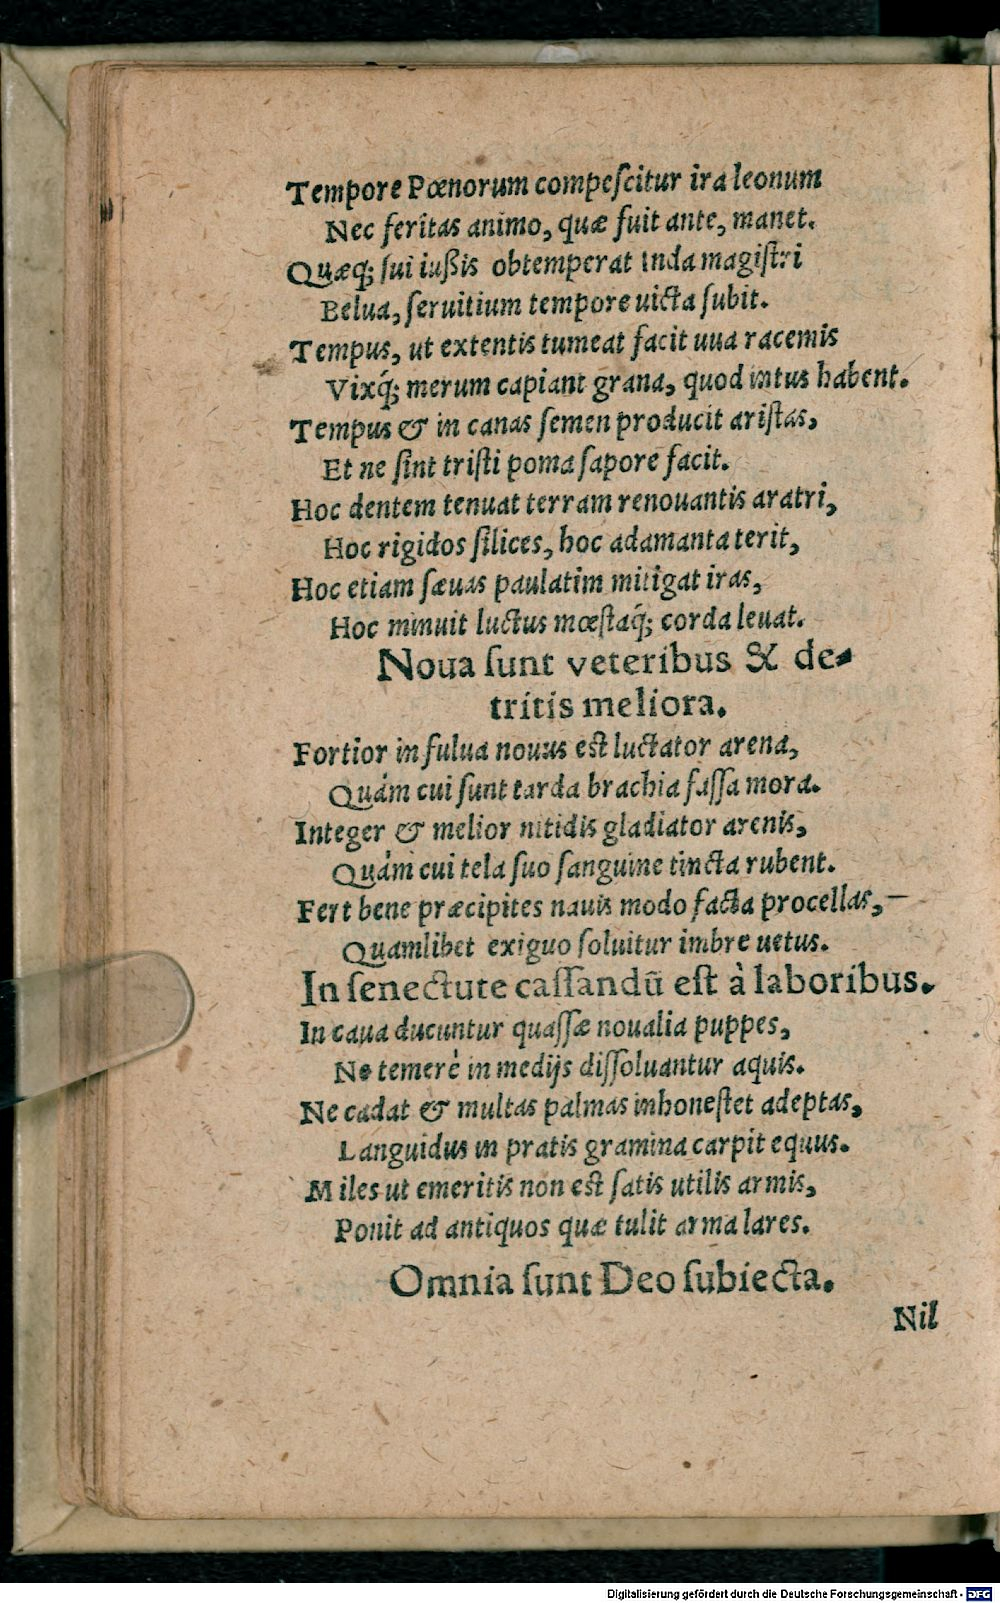 Tempore Pœnorum compeſcitur ira leonum
Nec feritas animo, quæ fuit ante, manet.
Quæq; ſui iußis obtemperat Inda magiſtri
Belua, ſeruitium tempore uicta ſubit.
Tempus, ut extentis tumeat facit uua racemis
Vixq́; merum capiant grana, quod intus habent.
Tempus & in canas ſemen producit ariſtas,
Et ne ſint triſti poma ſapore facit.
Hoc dentem tenuat terram renouantis aratri,
Hoc rigidos ſilices, hoc adamanta terit,
Hoc etiam ſæuas paulatim mitigat iras,
Hoc minuit luctus mœſtaq́; corda leuat.
Noua ſunt veteribus & de-
tritis meliora.
Fortior in fulua nouus eſt luctator arena,
Quàm cui ſunt tarda brachia faſſa mora.
Integer & melior nitidis gladiator arenis,
Quàm cui tela ſuo ſanguine tincta rubent.
Fert bene præcipites nauis modo facta procellas,
Quamlibet exiguo ſoluitur imbre uetus.
In ſenectute caſſandũ eſt à laboribus.
In caua ducuntur quaſſæ noualia puppes,
Ne temerè in medijs diſſoluantur aquis.
Ne cadat & multas palmas inhoneſtet adeptas,
Languidus in pratis gramina carpit equus.
Miles ut emeritis non eſt ſatis utilis armis,
Ponit ad antiquos quæ tulit arma lares.
Omnia ſunt Deo ſubiecta.
Nil
Digitalisierung gefördert durch die Deutsche Forschungsgemeinschaft - DFG